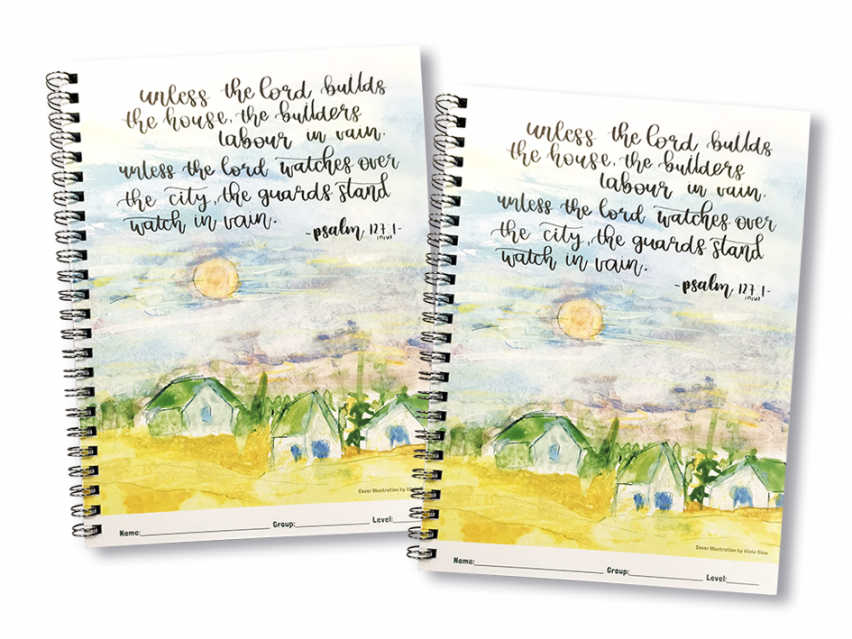 unless the lord builds
the house, the builders
labour in vain.
unless the lord watches over
the city, the guards stand
watch in vain.
-psalm 127:1-
(NIV)
Cover Illustration by
Name: Group: Level:
unless the lord builds
the house, the builders
labour in vain.
unless the lord watches over
the city, the guards stand
watch in vain.
-psalm 127:1-
(NIV)
Cover Illustration by
Name: Group: Level: